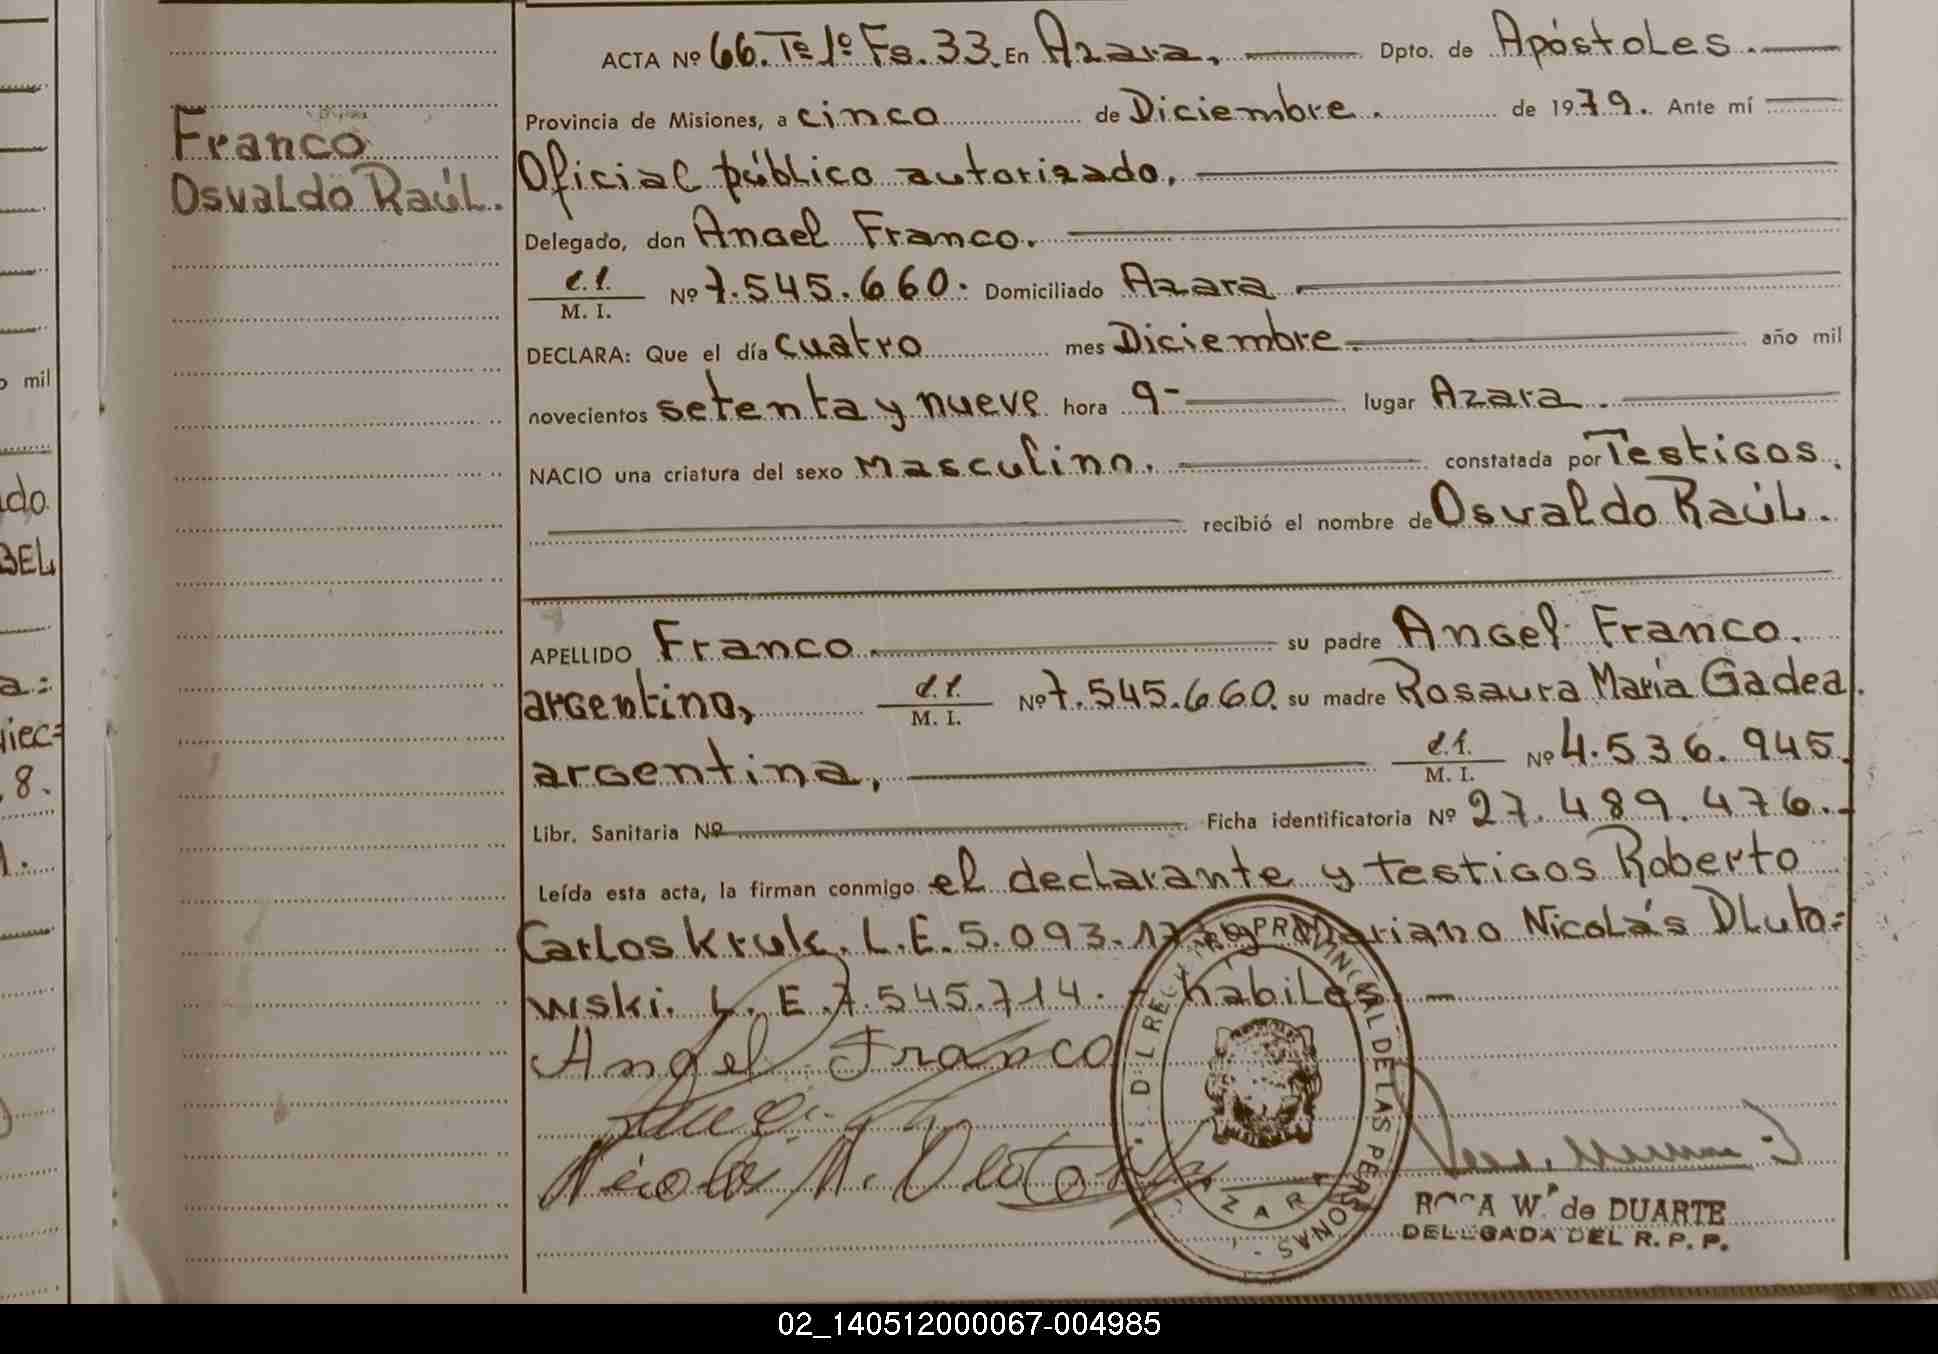 o mil
ado
BEL
a.=
iec=
8.
Franco
Osvaldo Raúl.
ACTA Nº 66. Tº 1º Fs. 33. En Azara, Dpto. de Apóstoles.
Provincia de Misiones, a cinco de Diciembre. de 1979. Ante mí
Oficial público autorizado,
Delegado, don Angel Franco.
M. I. Nº 7.545.660. Domiciliado Azara
DECLARA: Que el día cuatro mes Diciembre. año mil
novecientos setenta y nueve hora 9- lugar Azara.
NACIO una criatura del sexo masculino. constatada por Testigos.
recibió el nombre de Osvaldo Raúl.
APELLIDO Franco. su padre Angel Franco.
argentino, M. I. Nº 7.545.660. su madre Rosaura María Gadea.
argentina, M. I. Nº 4.536.945.
Libr. Sanitaria Nº Ficha identificatoria Nº 27.489.476.-
Leída esta acta, la firman conmigo el declarante y testigos Roberto
Carlos Kruk. L.E. 5.093. Mariano Nicolás Dluto=
wski. L. E. 7.545.714. - hábiles. -
Angel Franco
REGISTRO PROVINCIAL DE LAS PERSONAS
AZARA
ROSA W. de DUARTE
DELEGADA DEL R. P. P.
02_140512000067-004985